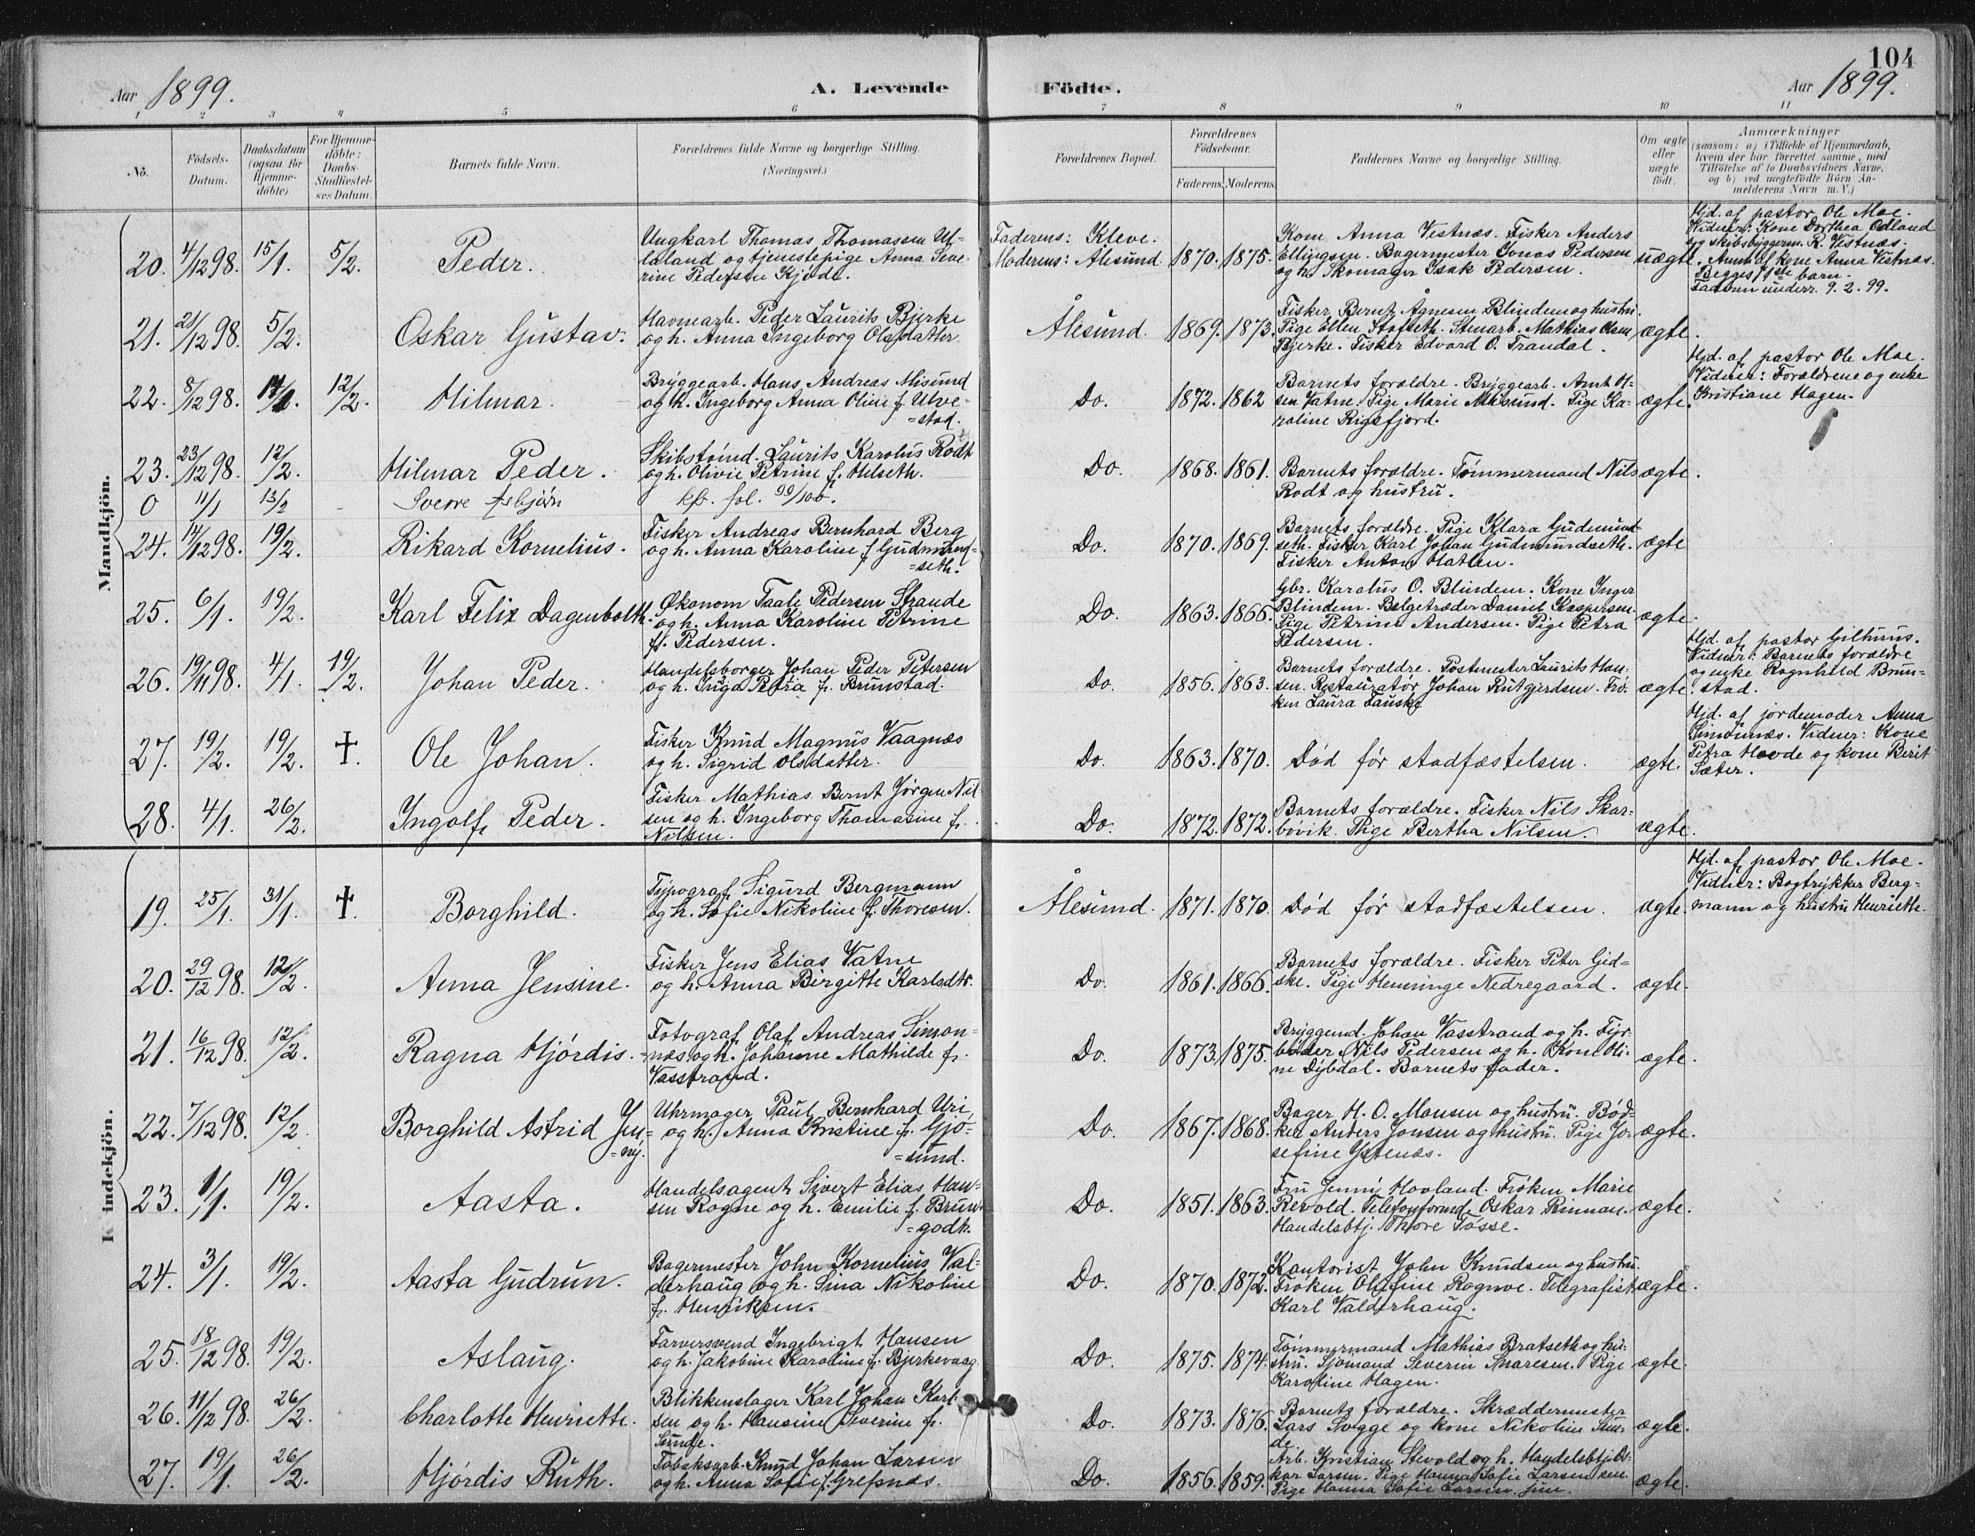 104
Aar 1899.
A. Levende Födte.
Aar 1899.
1 2 3 4 5 6 7 8 9 10 11
No.
Födsels-
Datum.
Daabsdatum
(ogsaa for
Hjemme-
döbte).
For Hjemme-
döbte:
Daabs-
Stadfæstel-
ses Datum.
Barnets fulde Navn.
Forældrenes fulde Navne og borgerlige Stilling.
(Næringsvei.)
Forældrenes Bopæl.
Forældrenes
Födselsaar.
Faderens. Moderens.
Faddernes Navne og borgerlige Stilling.
Om ægte
eller
uægte
födt.
Anmærkninger
(saasom: a) i Tilfælde af Hjemmedaab,
hvem der har forrettet samme, med
Tilföielse af to Daabsvidners Navne.
og b) ved uægtefödte Börn An-
melderens Navn m. V.)
Mandkjön.
20. 4/12 98. 15/1. 5/2. Peder.
Ungkarl Thomas Thomassen
og tjenestepige Anna Seve-
rine Pedersen Kjøde.
Faderens: Kleve.
Moderens: Ålesund.
1870. 1875.
Kone Anna Vestnæs. Fisker Anders
Ellingsen. Bagermester Jonas Pedersen
og h. Skomager Isak Pedersen.
uægte.
Hjd. af pastor Ole Moe.
Vidner: Kone Dorthea Ødland
og skibsbyggerm. R. Vestnæs.
Anm. af kone Anna Vestnæs.
Begges 1ste barn.
Faderen underr. 9.2.99.
21. 21/12 98. 5/2. Oskar Gustav.
Havnearb. Peder Laurits Bjerke
og h. Anna Ingeborg Olsdatter.
Ålesund. 1869. 1873.
Fisker Bernt Ågnesen Blindem og hustru.
Pige Ellen Stofseth. Stenarb. Mathias Olsen
Bjerke. Fisker Edvard O. Trandal.
ægte.
22. 8/12 98. 12/2. Hilmar.
Bryggearb. Hans Andreas Misund
og h. Ingeborg Anna Oline f. Ulve-
=stad.
Do. 1872. 1862
Barnets forældre. Bryggearb. Arnt H-
sen Vatne. Pige Marie Misund. Pige Ka-
roline Rigsfjord.
ægte.
Hjd. af pastor Ole Moe.
Vidner: Forældrene og enke
Kristiane Hagen.
23. 23/12 98. 12/2. Hilmar Peder.
Skibstømd. Laurits Karolus Rodt
og h. Olivie Petrine f. Helseth.
Do. 1868. 1861.
Barnets forældre. Tømmermand Nils
Rodt og hustru.
ægte.
0 11/1 13/2 Sverre Asbjørn
kfr. fol. 99/100.
24. 14/12 98. 19/2. Rikard Kornelius.
Fisker Andreas Bernhard Berg
og h. Anna Karoline f. Gudmund-
=seth.
Do. 1870. 1869.
Barnets forældre. Pige Klara Gudmund
seth. Fisker Karl Johan Gudmundseth.
Fisker Anton Hatlen.
ægte
25. 6/1. 19/2. Karl Felix Dagenbolth.
Økonom Taale Pedersen Strande
og h. Anna Karoline Petrine
f. Pedersen.
Do. 1863. 1866.
Gbr. Karolus O. Blindem. Kone Inger
Blindem. Belgetræder Daniel Kaspersen.
Pige Petrine Andersen. Pige Petra
Pedersen.
ægte.
26. 19/11 98. 4/1. 19/2. Johan Peder.
Handelsborger Johan Peder Petersen
og h. Inga Petra f. Brunstad.
Do. 1856. 1863.
Barnets forældre. Postmester Laurits Han-
sen. Restauratør Johan Rutgerdsen. Frø-
ken Laura Fauske
ægte.
Hjd. af pastor Gilhuus.
Vidner: Barnets forældre
og enke Ragnhild Brun-
stad.
27. 19/2. 19/2. ✝. Ole Johan.
Fisker Knud Magnus Vaagnæs
og h. Sigrid Olsdatter.
Do. 1863. 1870.
Død før stadfæstelsen.
ægte.
Hjd. af jordemoder Anna
Simonnæs. Vidner: Kone
Petra Hovde og kone Berit
Sæter.
28. 4/1. 26/2. Ingolf Peder.
Fisker Mathias Bernt Jørgen Nil-
sen og h. Ingeborg Thomasine f.
Nilsen.
Do. 1872. 1872.
Barnets forældre. Fisker Nils Skar-
bøvik. Pige Bertha Nilsen.
ægte.
Kvindekjön.
19. 25/1. 31/1. ✝. Borghild.
Typograf Sigurd Bergmann
og h. Sofie Nikoline f. Thoresen.
Ålesund. 1871. 1870
Død før stadfæstelsen.
ægte.
Hjd. af pastor Ole Moe.
Vidner: Bogtrykker Berg-
mann og hustru Henriette.
20. 29/12 98. 12/2. Anna Jensine.
Fisker Jens Elias Vatne
og h. Anna Birgitte Karlsdtr.
Do. 1861. 1866.
Barnets forældre. Fisker Peter Gid-
ske. Pige Henninge Nedregaard.
ægte.
21. 16/12 98. 12/2. Ragna Hjørdis.
Fotograf Olaf Andreas Simon-
=næs og h. Johanne Mathilde f.
Vasstrand.
Do. 1873. 1875.
Bryggemd. Johan Vasstrand og h. Fyr-
bøder Nils Pedersen og h. Kone Oli-
ne Dybdal. Barnets fader.
ægte.
22. 7/12 98. 12/2. Borghild Astrid Jen-
=ny.
Uhrmager Paul Bernhard Uri
og h. Anna Kristine f. Gjø-
=sund.
Do. 1867. 1868.
Bager H. O. Monsen og hustru. Bød-
ker Anders Jonsen og hustru. Pige Jo-
sefine Ystenæs.
ægte.
23. 1/1. 19/2. Aasta.
Handelsagent Sivert Elias Han-
sen Rogne og h. Emilie f. Brun-
=godt.
Do. 1851. 1863.
Fru Jenny Hovland. Frøken Marie
Revold. Telefonformd. Oskar Rinnan.
Handelsbtj. Thore Tosse.
ægte.
24. 3/1. 19/2. Aasta Gudrun.
Bagermester John Kornelius Val-
derhaug og h. Sina Nikoline
f. Henriksen.
Do. 1870. 1872.
Kontorist John Knudsen og hustru.
Frøken Olufine Rogne. Telegrafist
Karl Valderhaug.
ægte.
25. 18/12 98. 19/2. Aslaug.
Farversvend Ingebrigt Hansen
og h. Jakobine Karoline f. Bjerkevaag.
Do. 1875. 1874.
Tømmermand Mathias Bratseth og hu-
stru. Sjømand Severin Snaresen. Pige
Karoline Hagen.
ægte.
26. 11/12 98. 26/2. Charlotte Henriette.
Blikkenslager Karl Johan Karl-
sen og h. Hansine Severine f.
Sunde.
Do. 1873. 1876.
Barnets forældre. Skræddermester
Lars Svegge og kone Nikoline Sun-
de.
ægte.
27. 19/1. 26/2. Hjørdis Ruth.
Tobaksarb. Knud Johan Larsen
og h. Anna Sofie f. Grepnæs.
Do. 1856. 1859.
Arb. Kristian Stevold og h. Handelsbtj.
Larsen. Pige Hanna Sofie Larsen sen
Pige Hanna Sofie Larsen jun.
ægte.